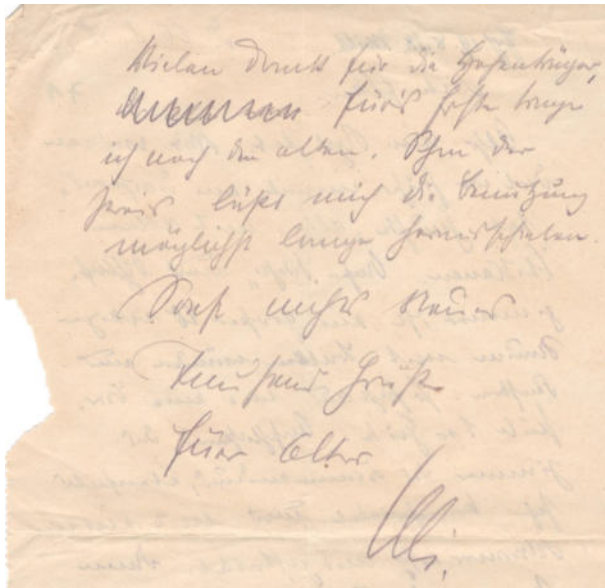 Vielen Dank für die Hosenträger,
fürs Erste trage
ich noch die alten. Schon der
Preis läßt mich die Benutzung
möglichst lange herausschieben.
Sonst nichts Neues
Tausend Grüße
Euer Alter
Ulli.